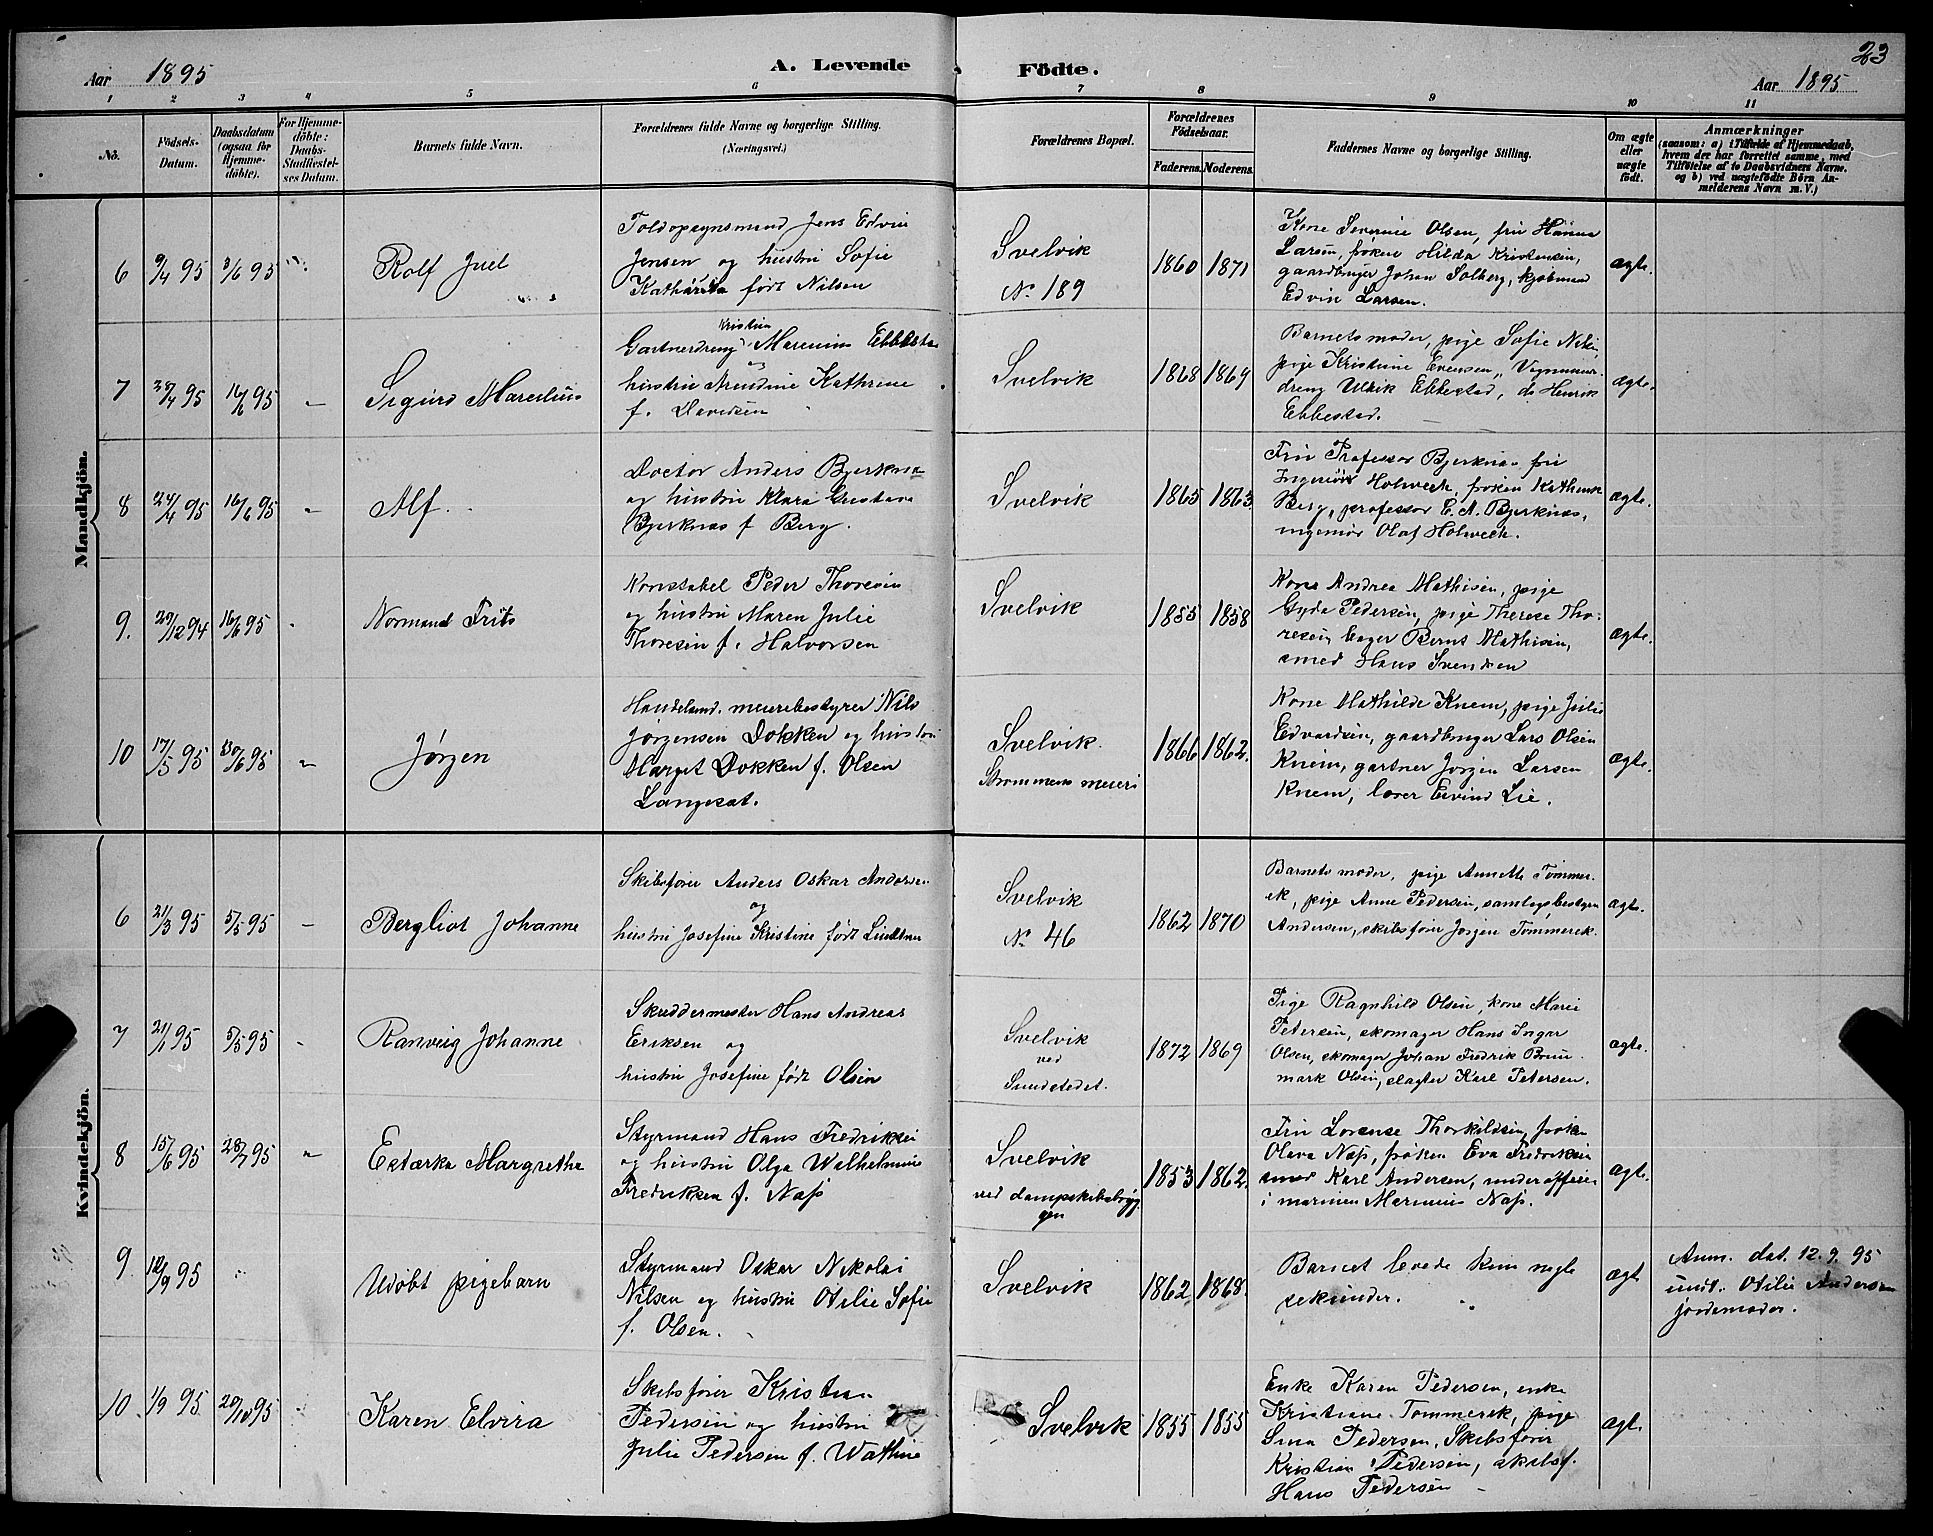 23
Aar 1895
A. Levende Födte.
Aar 1895
1 2 3 4 5 6 7 8 9 10 11
No.
Födsels-Datum.
Daabsdatum (ogsaa for Hjemme-döbte).
For Hjemme-döbte: Daabs-Stadfæstel-ses Datum.
Barnets fulde Navn.
Forældrenes fulde Navne og borgerlige Stilling.
(Næringsvei.)
Forældrenes Bopæl.
Forældrenes Födselsaar.
Faderens. Moderens.
Faddernes Navne og borgerlige Stilling.
Om ægte eller uægte födt.
Anmærkninger
(saasom: a) i Tilfælde af Hjemmedaab,
hvem der har forrettet samme, med
Tilföielse af to Daabsvidners Navne.
og b) ved uægtefödte Börn An-
melderens Navn m. V.)
Mandkjön.
6 9/4 95 3/6 95 Rolf Juel
Toldopsynsmand Jens Edvin
Jensen og hustru Sofie
Katharina født Nilsen
Svelvik
No 189
1860 1871
Kone Severine Olsen, fru Hanna
Larsen, frøken Hilda Kristensen,
gaardbruger Johan Solberg, kjøbmand
Edvin Larsen.
ægte.
7 25/4 95 16/6 95 – Sigurd Marelius
Kristian
Gartnerdreng Marenius Ebbestad
og
hustru Arendine Kathrine
f. Davidsen
Svelvik
1868 1869
Barnets moder, pige Sofie Nilsen,
pige Kristine Evensen,
dreng Ulrik Ebbestad, do Henrik
Ebbestad.
ægte.
8 24/4 95 16/6 95 – Alf.
Doctor Anders Bjerknæs
og hustru Klara Gustava
Bjerknæs f Berg.
Svelvik
1865 1863.
Fru Professor Bjerknæs, fru
Ingeniør Holwech, frøken Kathinka
Berg, professor C. A. Bjerknæs,
ingeniør Olaf Holwech.
ægte.
9. 29/12 94 16/6 95 Normand Frits
Konstabel Peder Thoresen
og hustru Maren Julie
Thoresen f. Halvorsen
Svelvik
1855 1858
Kone Andrea Mathisen, pige
Gyda Pedersen, pige Therese Tho-
resen, bager Bernt Mathisen,
smed Hans Svendsen
ægte.
10 17/5 95 30/6 95 – Jørgen
Handelsmd. meieribestyrer Nils
Jørgensen Dokken og hustru
Marget Dokken f. Olsen
Langesæt.
Svelvik.
Strømmens meieri
1866 1862.
Kone Mathilde Knem, pige Julie
Edvardsen, gaardbruger Lars Olsen
Knem, gartner Jørgen Larsen
Knem, lærer Eivind Lie.
ægte.
Kvindekjön.
6 21/3 95 5/5 95 – Bergliot Johanne
Skibsfører Anders Oskar Andersen
og
hustru Josefine Kristine født Lindtner
Svelvik
No 46
1862 1870
Barnets moder, pige Annette Tømmer-
ek, pige Anne Pedersen, samlagsbestyrer
Andersen, skibsfører Jørgen Tømmerek.
ægte.
7 21/1 95 5/5 95 Ranveig Johanne
Skuddermester Hans Andreas
Eriksen og
hustru Josefine født Olsen
Svelvik
ved
Sundstedet.
1872 1869
Pige Ragnhild Olsen, kone Marie
Petersen, skomager Hans Ingvar
Olsen, skomager Johan Fredrik Brun-
mark Olsen, slagter Karl Petersen.
ægte.
8 15/6 95 28/7 95 – Estærka Margrethe
Styrmand Hans Fredriksen
og hustru Olga Wilhelmine
Fredriksen f. Næss
Svelvik
ved dampskibsbryg-
gen
1853 1862.
Fru Lorense Thorkildsen, frøken
Olava Næss, frøken Eva Fredriksen
smed Karl Andersen, underofficer
i marinen Marinius Næss.
ægte.
9. 12/9 95 Udøbt pigebarn
Styrmand Oskar Nikolai
Nilsen og hustru Otilie Sofie
f. Olsen.
Svelvik
1862 1868.
Barnet levede kun nogle
sekunder.
ægte
Anm. dat. 12.9.95
undt. Otilie Andersen
jordemoder.
10. 1/9 95 20/10 95 Karen Elvira
Skibsfører Kristian
Pedersen og hustru
Julie Pedersen f. Wathne
Svelvik
1855 1855
Enke Karen Pedersen, enke
Kristiane Tømmerek, pige
Sina Pedersen, Skibsfører
Kristian Pedersen, skibsf.
Hans Pedersen
ægte